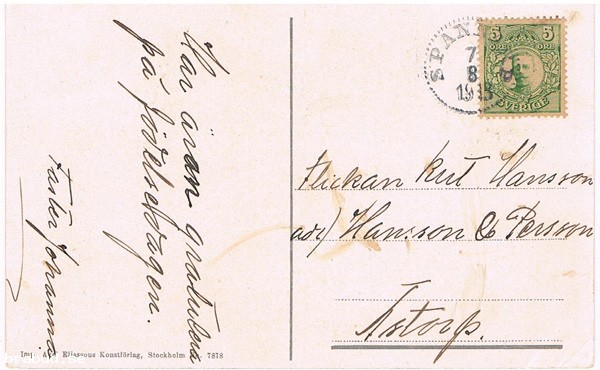 Har äran gratulera
på födelsedagen.
Faster Johanna.
SPAN
7
8
1913
5 5
ÖRE ÖRE
SVERIGE
Flickan Rut Hansson
adr/ Hansson & Persson
Åstorp.
Eliassons Konstförlag, Stockholm 7878